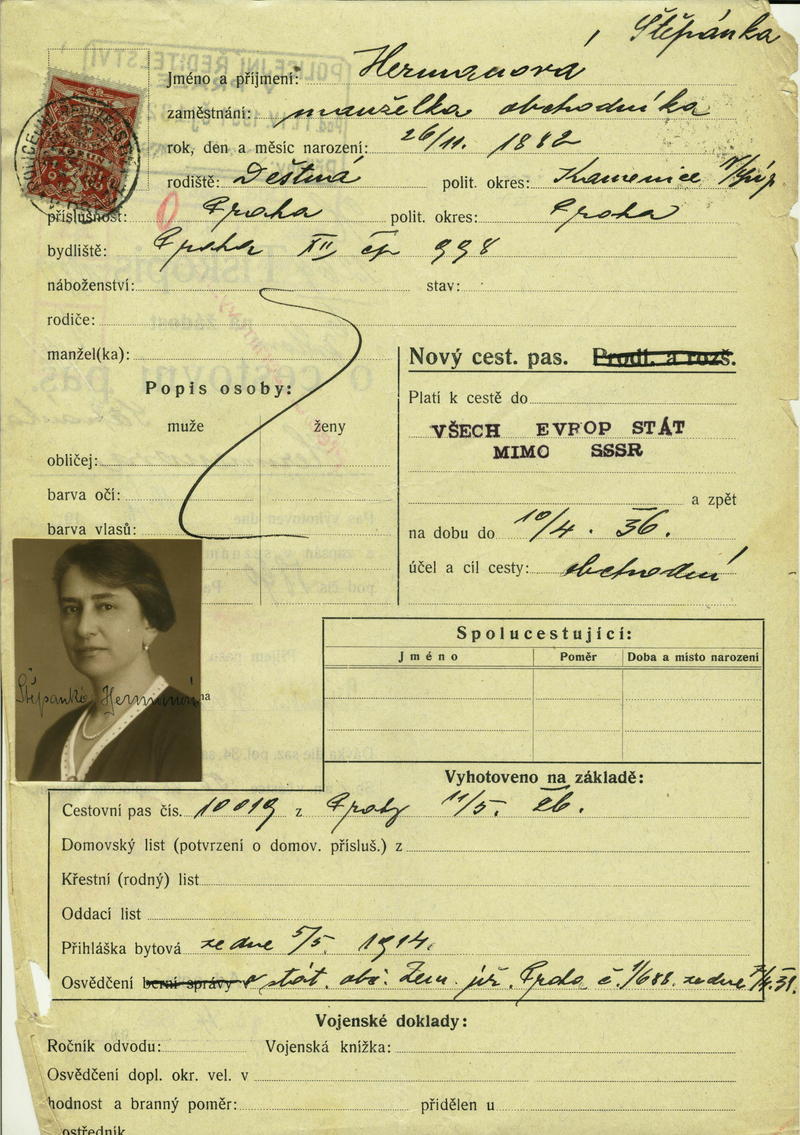 Štěpánka
Jméno a příjmení: Hermanová
zaměstnání: manželka obchodníka
rok, den a měsíc narození: 26/11. 1882
rodiště: Deštná polit. okres: Kamenice
příslušnost: Praha polit. okres: Praha
bydliště: Praha XII čp 998
náboženství: stav:
rodiče:
manžel(ka):
Popis osoby:
muže ženy
obličej:
barva očí:
barva vlasů:
Nový cest. pas. Prodl. a rozš.
Platí k cestě do
VŠECH EVROP STÁT
MIMO SSSR
a zpět
na dobu do 10/4. 36.
účel a cíl cesty: obchodní
Štěpánka Hermanová
Spolucestující:
Jméno Poměr Doba a místo narození
Vyhotoveno na základě:
Cestovní pas čís. 10019 z Prahy 11/5. 26.
Domovský list (potvrzení o domov. přísluš.) z
Křestní (rodný) list
Oddací list
Přihláška bytová ze dne 5/5. 1914.
Osvědčení berní správy o stát. obč. Zem. úř. Praha č. 1/688. ze dne
Vojenské doklady:
Ročník odvodu: Vojenská knížka:
Osvědčení dopl. okr. vel. v
hodnost a branný poměr: přidělen u